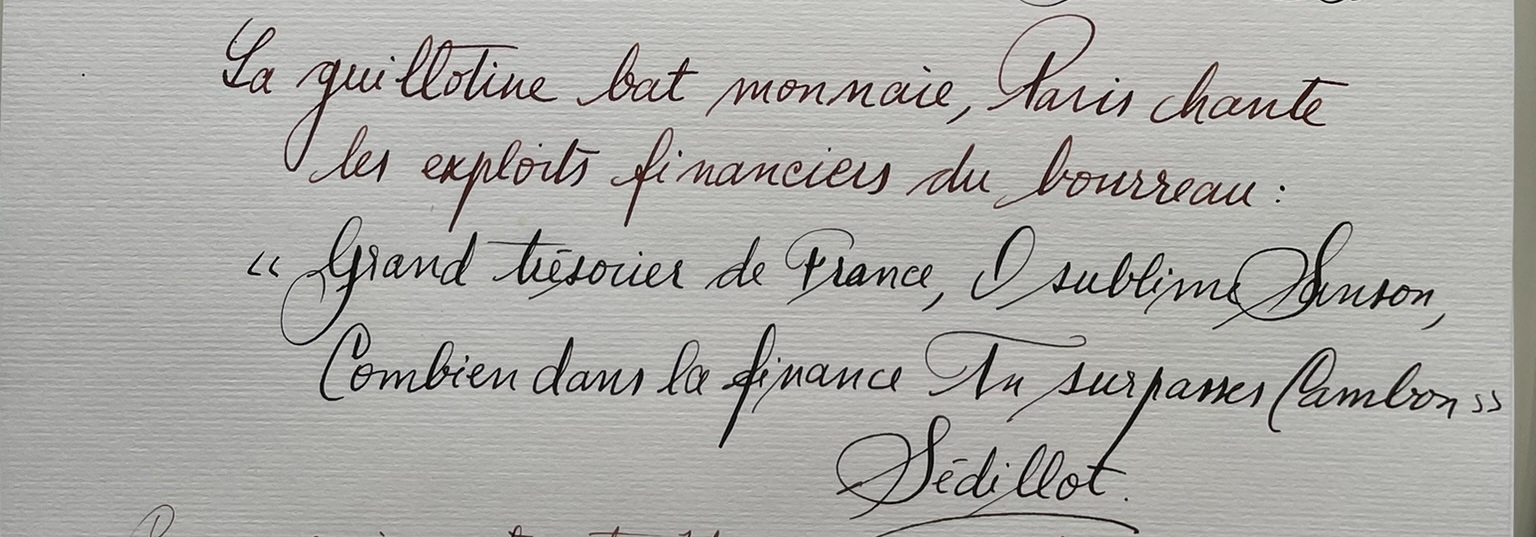 La guillotine bat monnaie, Paris chante
les exploits financiers du bourreau :
« Grand trésorier de France, O sublime Sanson,
Combien dans la finance Tu surpasses Cambon »
Sédillot.